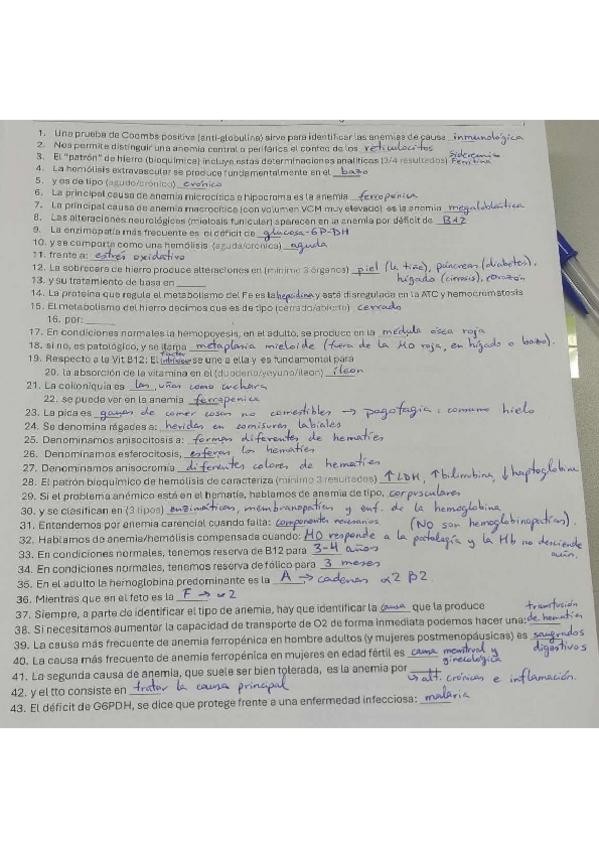 1. Una prueba de Coombs positiva (anti-globulina) sirve para identificar las anemias de causa inmunológica
2. Nos permite distinguir una anemia central o periférica el conteo de los reticulocitos
3. El "patrón" de hierro (bioquímica) incluye estas determinaciones analíticas (3/4 resultados) Sideremia Ferritina
4. La hemólisis extravascular se produce fundamentalmente en el bazo
5. y es de tipo (agudo/crónico) crónico
6. La principal causa de anemia microcítica e hipocroma es la anemia ferropénica
7. La principal causa de anemia macrocítica (con volumen VCM muy elevado) es la anemia megaloblástica
8. Las alteraciones neurológicas (mielosis funicular) aparecen en la anemia por déficit de B12
9. La enzimopatía más frecuente es el déficit de glucosa-6P-DH
10. y se comporta como una hemólisis (aguda/crónica) aguda
11. frente a: estrés oxidativo
12. La sobrecarga de hierro produce alteraciones en (mínimo 3 órganos) piel (la tiñe), páncreas (diabetes),
hígado (cirrosis), corazón
13. y su tratamiento de basa en
14. La proteína que regula el metabolismo del Fe es la hepcidina y está disregulada en la ATC y hemocromatosis
15. El metabolismo del hierro decimos que es de tipo (cerrado/abierto) cerrado
16. por:
17. En condiciones normales la hemopoyesis, en el adulto, se produce en la médula ósea roja
18. si no, es patológico, y se llama metaplasia mieloide (fuera de la MO roja, en hígado o bazo).
19. Respecto a la Vit B12: El factor intrínseco se une a ella y es fundamental para
20. la absorción de la vitamina en el (duodeno/yeyuno/íleon) íleon
21. La coiloniquia es las uñas como cuchara
22. se puede ver en la anemia ferropénica
23. La pica es ganas de comer cosas no comestibles → pagofagia: consumo hielo
24. Se denomina rágades a: heridas en comisuras labiales
25. Denominamos anisocitosis a: formas diferentes de hematíes
26. Denominamos esferocitosis, esferas los hematíes
27. Denominamos anisocromía diferentes colores de hematíes
28. El patrón bioquímico de hemólisis de caracteriza (mínimo 3 resultados) ↑LDH, ↑bilirrubina, ↓haptoglobina
29. Si el problema anémico está en el hematíe, hablamos de anemia de tipo, corpusculares
30. y se clasifican en (3 tipos) enzimáticas, membranopatías y enf. de la hemoglobina
31. Entendemos por anemia carencial cuando falta: componentes necesarios (NO son hemoglobinopatías).
32. Hablamos de anemia/hemólisis compensada cuando: MO responde a la patología y la Hb no desciende
aún.
33. En condiciones normales, tenemos reserva de B12 para 3-4 años
34. En condiciones normales, tenemos reserva de fólico para 3 meses
35. En el adulto la hemoglobina predominante es la A → cadenas α2 β2
36. Mientras que en el feto es la F → α2
37. Siempre, a parte de identificar el tipo de anemia, hay que identificar la causa que la produce
38. Si necesitamos aumentar la capacidad de transporte de O2 de forma inmediata podemos hacer una: transfusión de hematíes
39. La causa más frecuente de anemia ferropénica en hombre adultos (y mujeres postmenopáusicas) es sangrados digestivos
40. La causa más frecuente de anemia ferropénica en mujeres en edad fértil es causa menstrual y ginecológica
41. La segunda causa de anemia, que suele ser bien tolerada, es la anemia por
↳ alt. crónicas e inflamación.
42. y el tto consiste en tratar la causa principal
43. El déficit de G6PDH, se dice que protege frente a una enfermedad infecciosa: malaria